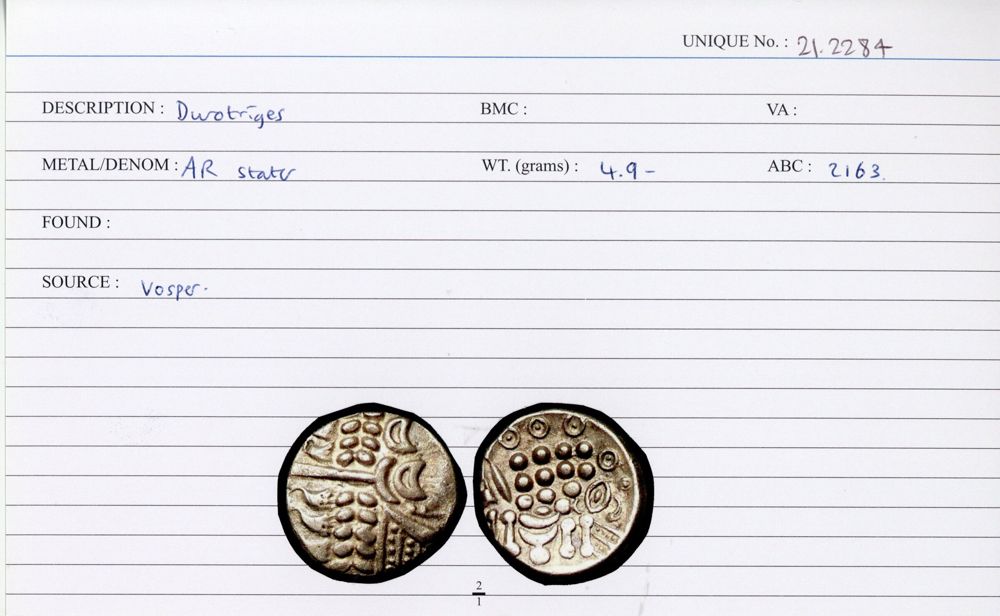 UNIQUE No. : 21.2284
DESCRIPTION : Durotriges BMC : VA :
METAL/DENOM : AR stater WT. (grams) : 4.9- ABC : 2163.
FOUND :
SOURCE : Vosper.
2
1